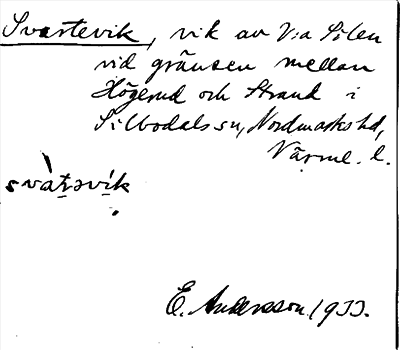 Svartevik, vik av V:a Silen
vid gränsen mellan
Högerud och Strand i
Silbodals sn, Nordmarks hd,
Värml. l.
svàt̠əvi̠k
E. Andersson 1933.